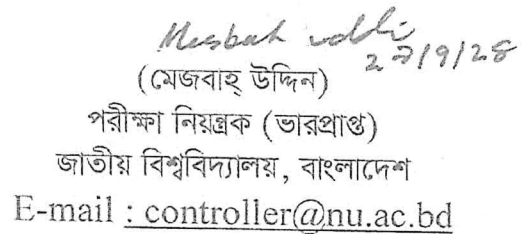 Mesbah uddin
27/9/28
(মেজবাহ্ উদ্দিন)
পরীক্ষা নিয়ন্ত্রক (ভারপ্রাপ্ত)
জাতীয় বিশ্ববিদ্যালয়, বাংলাদেশ
E-mail : controller@nu.ac.bd